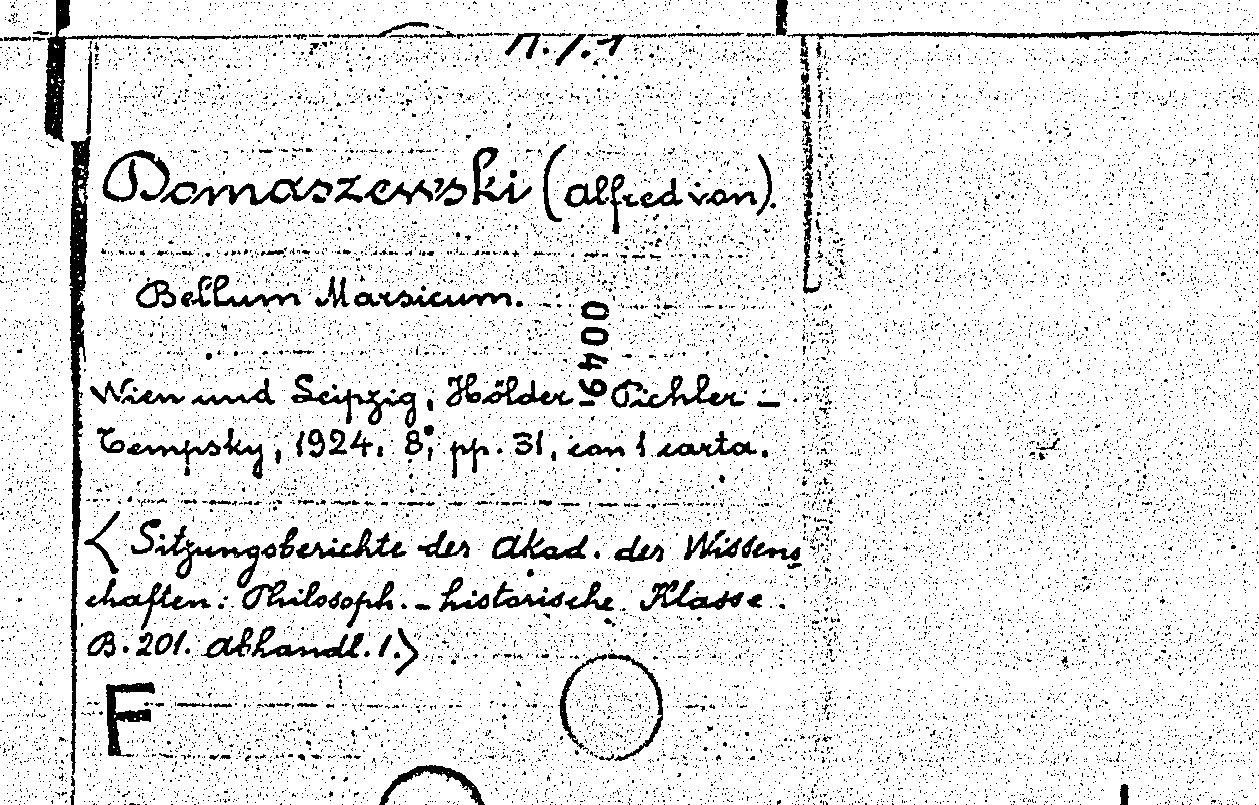 Domaszewski (Alfred von).
Bellum Marsicum.
Wien und Leipzig, Hölder-Pichler-
Tempsky, 1924. 8°, pp. 31, con 1 carta.
<Sitzungsberichte der Akad. der Wissens
chaften: Philosoph.-historische Klasse.
B. 201. Abhandl. 1.>
F